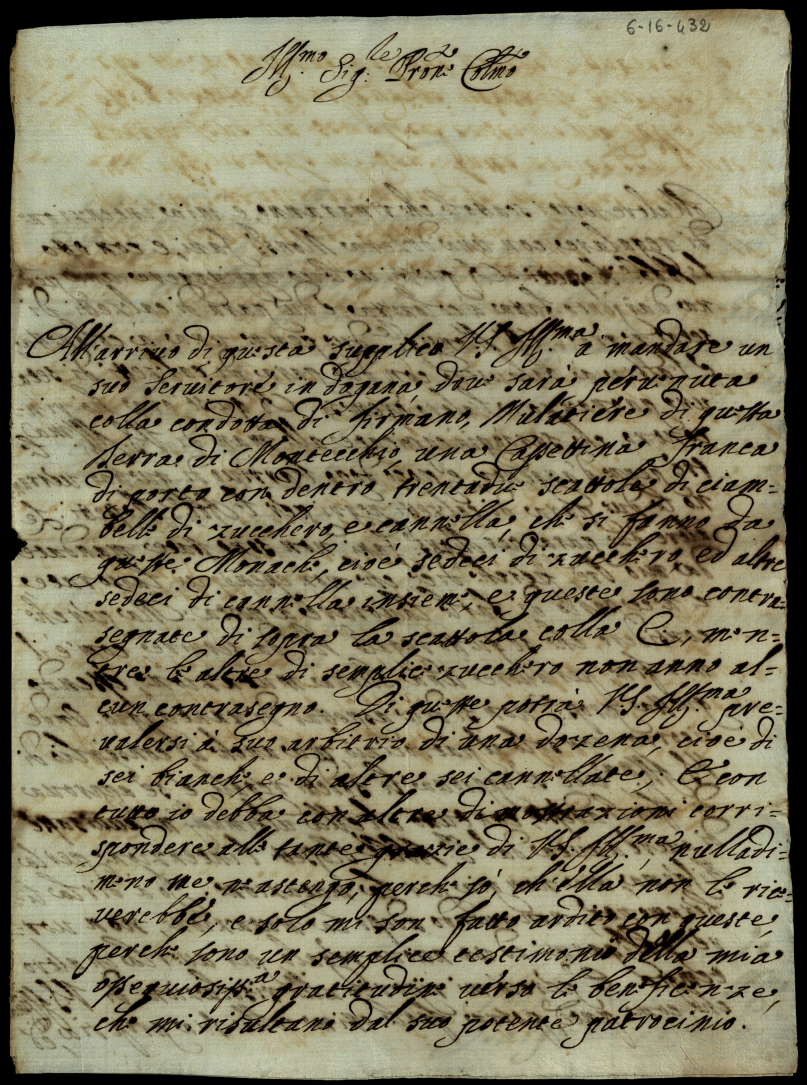 6-16-432
Ill.mo Sig.re Pron.e Colmo
All'arrivo di questa supplico V.S. Ill.ma a mandare un
suo Servitore in dogana, dove sarà pervenuta
colla condotta di Firmano, Mulatiere di questa
Terra di Montecchio, una Cassettina franca
di porto con dentro trentadue scattole di ciam-
belle di zucchero, e cannella, che si fanno da
queste Monache, cioè sedeci di zucchero, ed altre
sedeci di cannella insieme, e queste sono contra-
segnate di sopra la scattola colla C., men-
tre le altre di semplice zucchero non anno al-
cun contrasegno. Di queste potrà V.S. Ill.ma pre-
valersi à suo arbitrio di una dozena, cioè di
sei bianche, e di altre sei cannellate; E con
tutto io debba con altre dimostrazioni corri-
spondere alle tante grazie di V.S. Ill.ma, nulladi-
meno me ne astengo, perche sò, ch'ella non le rice-
verebbe, e solo mi son fatto ardito con queste,
perche sono un semplice testimonio della mia
ossequiosiss.a gratitudine verso le beneficenze,
che mi risultano dal suo potente patrocinio.